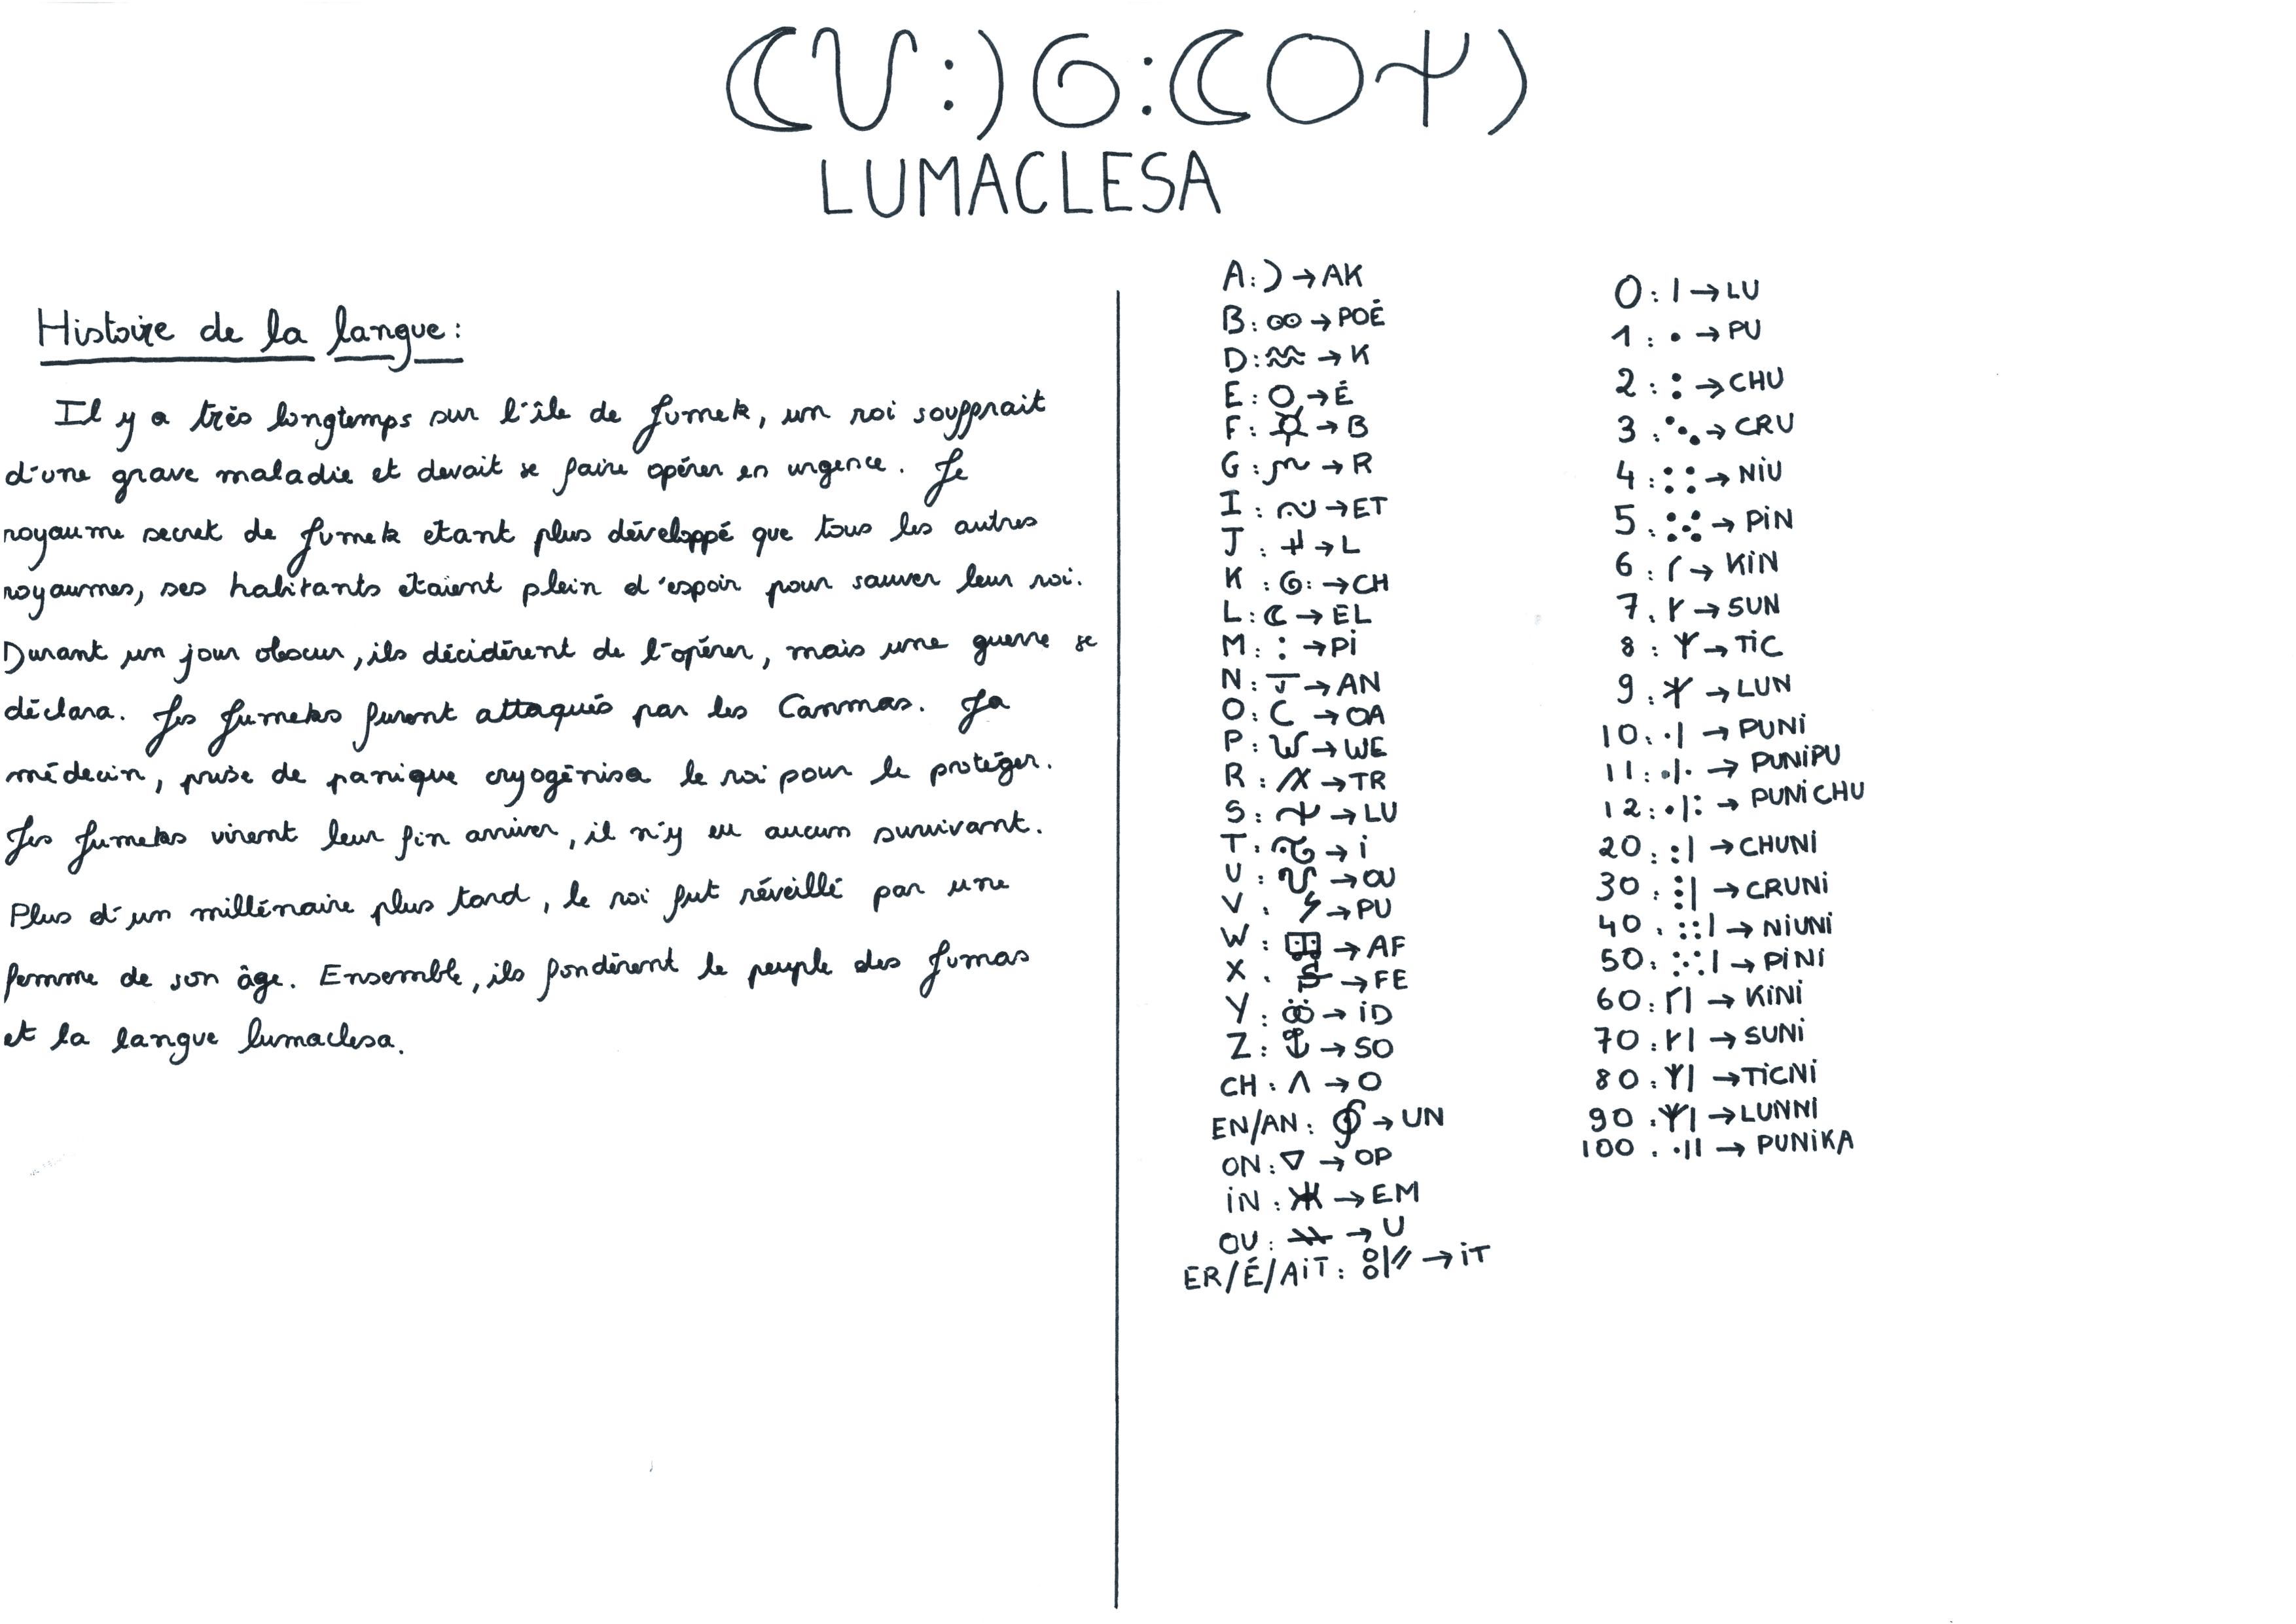 LUMACLESA
Histoire de la langue:
Il y a très longtemps sur l'île de Lumek, un roi souffrait
d'une grave maladie et devait se faire opérer en urgence. Le
royaume secret de Lumek étant plus développé que tous les autres
royaumes, ses habitants étaient plein d'espoir pour sauver leur roi.
Durant un jour obscur, ils décidèrent de l'opérer, mais une guerre se
déclara. Les Lumeks furent attaqués par les Canmas. La
médecin, prise de panique cryogénisa le roi pour le protéger.
Les Lumeks virent leur fin arriver, il n'y eu aucun survivant.
Plus d'un millénaire plus tard, le roi fut réveillé par une
femme de son âge. Ensemble, ils fondèrent le peuple des Lumas
et la langue lumaclesa.
A: ) → AK
B: → POÉ
D: → K
E: O → É
F: → B
G: → R
I: → ET
J: → L
K: → CH
L: ☾ → EL
M: : → Pi
N: → AN
O: C → OA
P: → WE
R: → TR
S: → LU
T: → i
U: → OU
V: → PU
W: → AF
X: → FE
Y: → iD
Z: ⚓ → SO
CH: Λ → O
EN/AN: → UN
ON: ▽ → OP
iN: Ж → EM
OU: → U
ER/É/AiT: → iT
0: | → LU
1: • → PU
2: : → CHU
3: ⋱ → CRU
4: :: → NiU
5: ⁙ → PiN
6: → KiN
7: → SUN
8: → TiC
9: → LUN
10: •| → PUNi
11: •|• → PUNiPU
12: •|: → PUNiCHU
20: :| → CHUNi
30: ⋮| → CRUNi
40: ::| → NiUNi
50: ⁙| → PiNi
60: → KiNi
70: → SUNi
80: → TiCNi
90: → LUNNi
100: •|| → PUNiKA